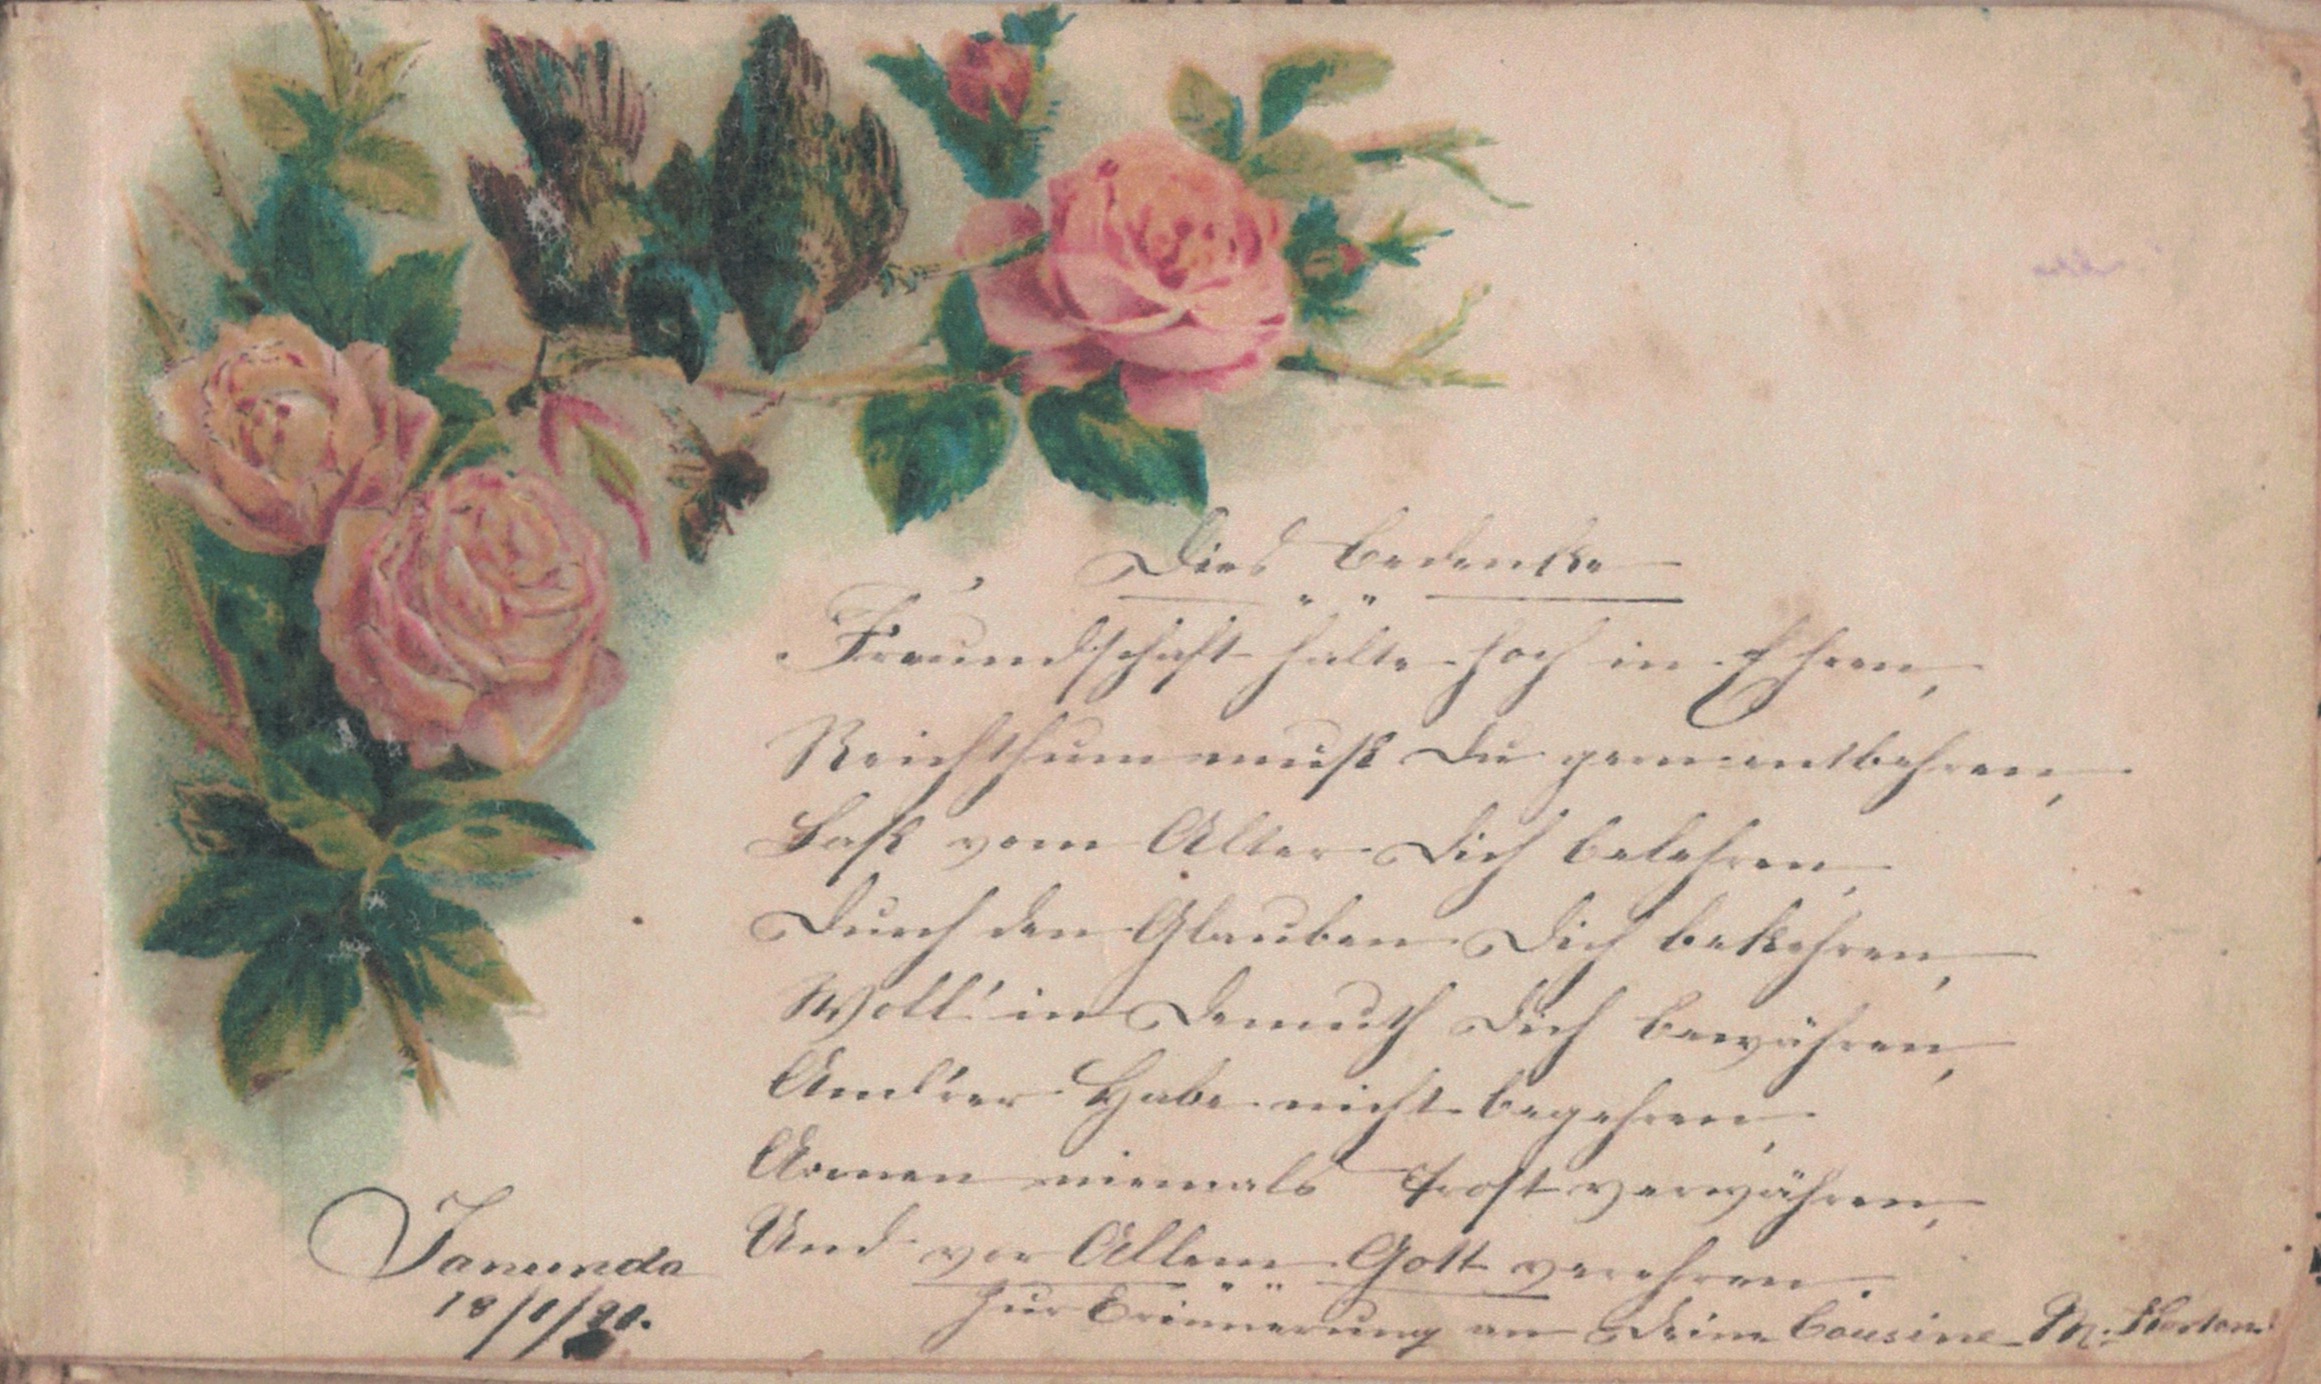 Dies bedenke
Freundschaft halte hoch in Ehren,
Reichthum mußt Du gern entbehren,
Laß vom Alter Dich belehren,
Durch den Glauben Dich bekehren,
Woll' in Demuth Dich bewähren,
And'rer Habe nicht begehren,
Armen niemals Trost verwähren,
Und vor Allem Gott verehren.
Zur Erinnerung an Deine Cousine M.
Tanunda
18/1/90.